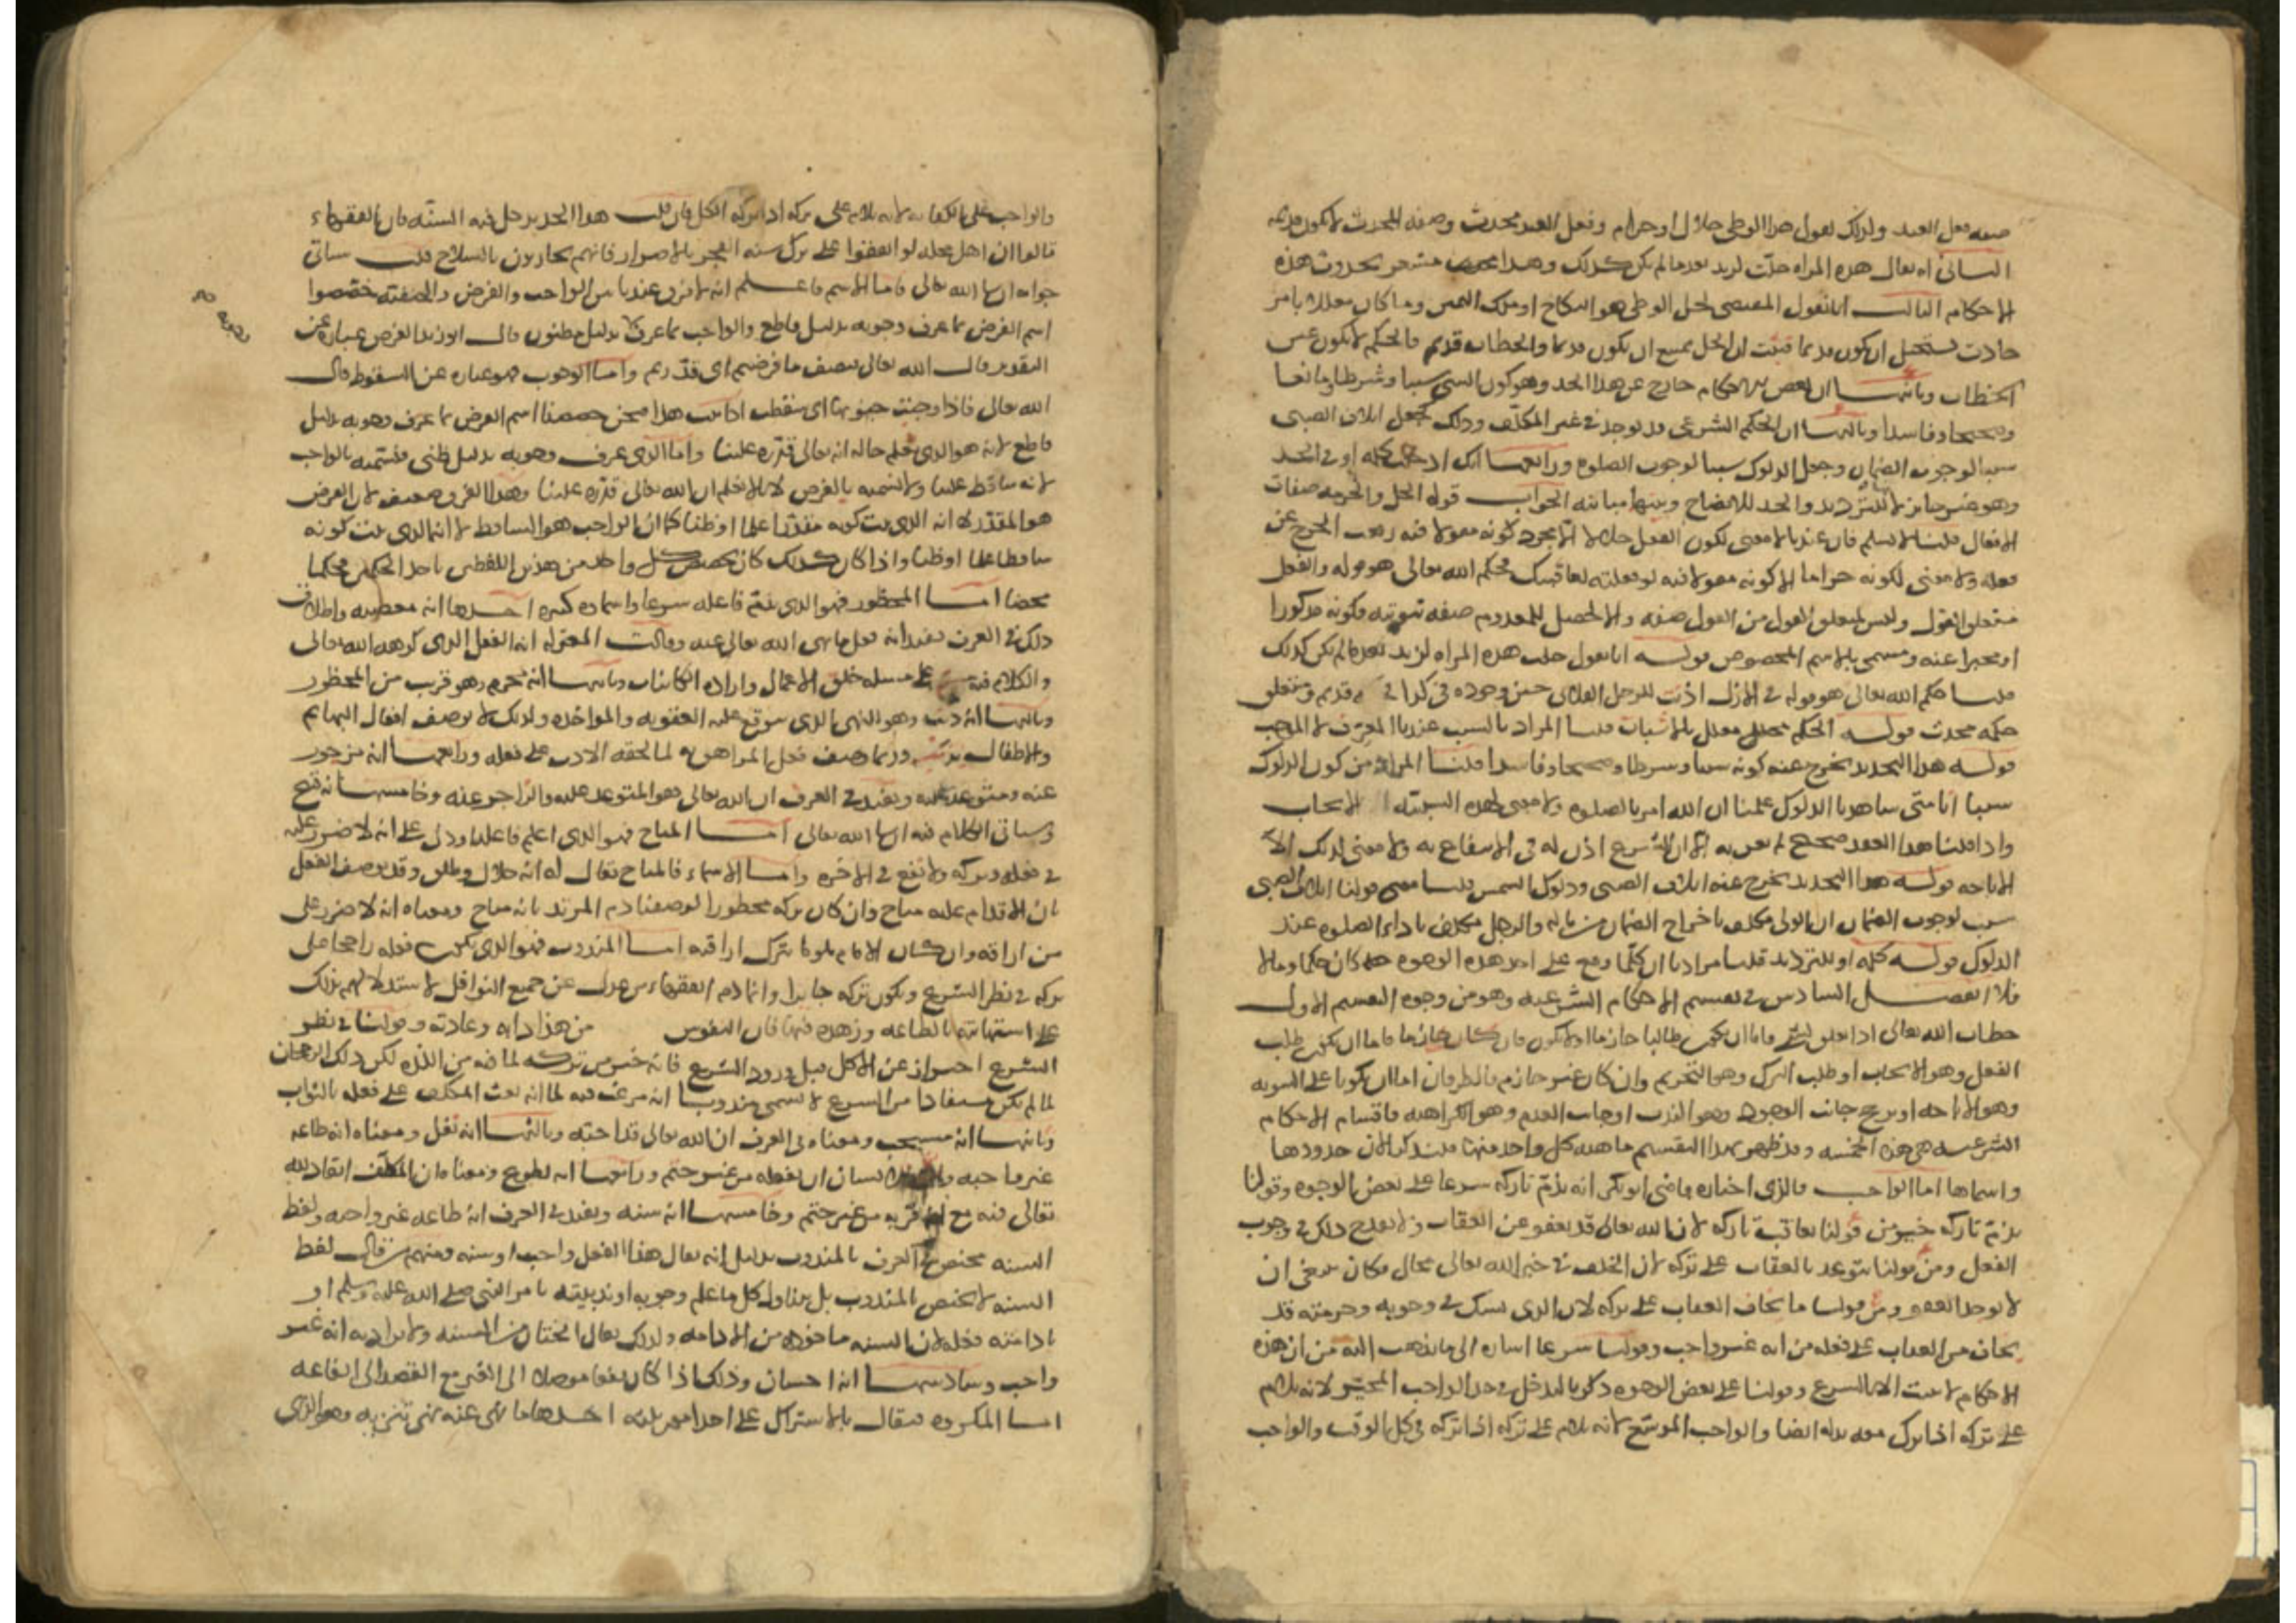 صفه فعل العبد ولذلك نقول هذا الوطى حلال او حرام وفعل العبد محدث وصفه المحدث لا تكون قديمه
الثانى انه يقال هذه المراه حلت لزيد بعد ما لم تكن كذلك وهذا مشعر بحدوث هذه
الاحكام الثالث انا نقول المقتضى لحل الوطى هو النكاح او ملك اليمين وما كان معللا بامر
حادث يستحيل ان يكون قديما فثبت ان الحل يمتنع ان يكون قديما والخطاب قديم فالحكم لا يكون عين
الخطاب وثانيها ان بعض الاحكام خارج عن هذا الحد وهو كون الشى سببا وشرطا ومانعا
وصحيحا وفاسدا وثالثها ان الحكم الشرعى قد يوجد فى غير المكلف وذلك كجعل اتلاف الصبى
سببا لوجوب الضمان وجعل الدلوك سببا لوجوب الصلوه ورابعها انك ادخلت كلمه او فى الحد
وهو غير جايز لانها للترديد والحد للايضاح وبينهما مباينه الجواب قوله الحل والحرمه صفات
الافعال قلنا لا نسلم فان عندنا لا معنى لكون الفعل حلالا الا مجرد كونه مقولا فيه رفعت الحرج عن
فعله ولا معنى لكونه حراما الا كونه مقولا فيه لو فعلته لعاقبتك فحكم الله تعالى هو قوله والفعل
متعلق القول وليس لمتعلق القول من القول صفه والا لحصل للمعدوم صفه ثبوتيه بكونه مذكورا
او مخبرا عنه ومسمى بالاسم المخصوص قوله انا نقول حلت هذه المراه لزيد بعد ما لم تكن كذلك
قلنا حكم الله تعالى هو قوله فى الازل اذنت للرجل الفلانى حين وجوده فى كذا قديم ومتعلق
حكمه محدث قوله الحكم معلل بالاسباب قلنا المراد بالسبب عندنا المعرف لا الموجب
قوله هذا التحديد يخرج عنه كونه سببا وشرطا وصحيحا وفاسدا قلنا المراد من كون الدلوك
سببا انا متى شاهدنا الدلوك علمنا ان الله امرنا بالصلوه ولا معنى لهذه السببيه الا الايجاب
واذا قلنا هذا العقد صحيح لم نعن به الا ان الشرع اذن له فى الانتفاع به ولا معنى لذلك الا
الاباحه قوله هذا التحديد يخرج عنه اتلاف الصبى ودلوك الشمس قلنا معنى قولنا اتلاف الصبى
سبب لوجوب الضمان ان الولى مكلف باخراج الضمان من ماله والرجل مكلف باداء الصلوه عند
الدلوك قوله كلمه او للترديد قلنا مرادنا ان كلما وقع على احد هذه الوجوه كان حكما وما لا
فلا الفصل السادس فى تقسيم الاحكام الشرعيه وهو من وجوه التقسيم الاول
خطاب الله تعالى اذا تعلق بشى فاما ان يكون طالبا جازما او لا يكون فان كان جازما فاما ان يكون طلب
الفعل وهو الايجاب او طلب الترك وهو التحريم وان كان غير جازم فالطرفان اما ان يكونا على السويه
وهو الاباحه او يترجح جانب الوجود وهو الندب او جانب العدم وهو الكراهه فاقسام الاحكام
الشرعيه هى هذه الخمسه وقد ظهر بهذا التقسيم ماهيه كل واحد منها فلنذكر الان حدودها
واسماها اما الواجب فالذى اختاره القاضى ابو بكر انه يذم تاركه شرعا على بعض الوجوه وقولنا
يذم تاركه خير من قولنا يعاقب تاركه لان الله تعالى قد يعفو عن العقاب ولا يقدح ذلك فى وجوب
الفعل ومن قولنا يتوعد بالعقاب على تركه لان الخلف فى خبر الله تعالى محال فكان ينبغى ان
لا يوجد العفو ومن قولنا ما يخاف العقاب على تركه لان الذى يشك فى وجوبه وحرمته قد
يخاف من العقاب على فعله مع انه غير واجب وقولنا شرعا اشاره الى ما نذهب اليه من ان هذه
الاحكام لا تثبت الا بالشرع وقولنا على بعض الوجوه ذكرنا ليدخل فى حد الواجب المخير لانه يلام
على تركه اذا ترك معه بدله ايضا والواجب الموسع لانه يلام على تركه اذا تركه فى كل الوقت والواجب
والواجب على الكفايه لانه يلام على تركه اذا تركه الكل فان قلت هذا الحد يدخل فيه السنه فان الفقهاء
قالوا ان اهل محله لو اتفقوا على ترك سنه الفجر بالاصرار فانهم يحاربون بالسلاح قلت ساتى
جوابه ان شا الله تعالى فاما الاسم فاعلم انه لا فرق عندنا بين الواجب والفرض والحنفيه خصصوا
اسم الفرض بما عرف وجوبه بدليل قاطع والواجب بما عرف بدليل مظنون قال ابو زيد الفرض عباره عن
التقدير قال الله تعالى فنصف ما فرضتم اى قدرتم واما الوجوب فهو عباره عن السقوط قال
الله تعالى فاذا وجبت جنوبها اى سقطت اذا ثبت هذا فنحن خصصنا اسم الفرض بما عرف وجوبه بدليل
قاطع لانه هو الذى يعلم حاله انه تعالى قدره علينا واما الذى عرف وجوبه بدليل ظنى فنسميه بالواجب
لانه ساقط علينا ولا نسميه بالفرض لانا لا نعلم ان الله تعالى قدره علينا وهذا الفرق ضعيف لان الفرض
هو المقدر لا انه الذى ثبت كونه مقدرا علما او ظنا كما ان الواجب هو الساقط لا انه الذى ثبت كونه
ساقطا علما او ظنا واذا كان كذلك كان تخصيص كل واحد من هذين اللفظين باحد الحكمين تحكما
محضا اما المحظور فهو الذى يذم فاعله شرعا واسماوه كثيره احدها انه معصيه واطلاق
ذلك فى العرف يفيد انه فعل ما نهى الله تعالى عنه وقالت المعتزله انه الفعل الذى كرهه الله تعالى
والكلام فيه على مسله خلق الاعمال واراده الكائنات وثانيها انه محرم وهو قريب من المحظور
وثالثها انه ذنب وهو المنهى الذى يتوقع عليه العقوبه والمواخذه ولذلك لا توصف افعال البهايم
والاطفال بذلك وربما وصف فعل المراهق به لما يلحقه الادب على فعله ورابعها انه مزجور
عنه ومتوعد عليه ويفيد فى العرف ان الله تعالى هو المتوعد عليه والزاجر عنه وخامسها انه قبيح
وسياتى الكلام فيه ان شا الله تعالى اما المباح فهو الذى اعلم فاعله او دل على انه لا ضرر عليه
فى فعله وتركه ولا نفع فى الاخره واما الاسماء فالمباح يقال له انه حلال وطلق وقد يوصف الفعل
بان الاقدام عليه مباح وان كان تركه محظورا كوصفنا دم المرتد بانه مباح ومعناه انه لا ضرر على
من اراقه وان كان الامام ملوما بترك اراقته اما المندوب فهو الذى يكون فعله راجحا على
تركه فى نظر الشرع ويكون تركه جايزا وانما ذم الفقهاء من عدل عن جميع النوافل لاستدلالهم بذلك
على استهانته بالطاعه وزهده فيها فان النفوس من هذا دابه وعادته وقولنا فى نظر
الشرع احتراز عن الاكل قبل ورود الشرع فانه خير من تركه لما فيه من اللذه لكن ذلك الرجحان
لما لم يكن مستفادا من الشرع لا يسمى مندوبا انه مرغب فيه لما انه بعث المكلف على فعله بالثواب
وثانيها انه مستحب ومعناه فى العرف ان الله تعالى قد احبه وثالثها انه نفل ومعناه انه طاعه
غير واجبه وان للانسان ان يفعله من غير حتم ورابعها انه تطوع ومعناه ان المكلف انقاد لله
تعالى فيه مع انه قربه من غير حتم وخامسها انه سنه ويفيد فى العرف انه طاعه غير واجبه ولفظ
السنه مختص فى العرف بالمندوب بدليل انه يقال هذا الفعل واجب او سنه ومنهم من قال لفظ
السنه لا يختص بالمندوب بل يتناول كل ما علم وجوبه او ندبيته بامر النبى صلى الله عليه وسلم او
بادامته فعله لان السنه ماخوذه من الادامه ولذلك يقال الختان من السنه ولا يراد به انه غير
واجب وسادسها انه احسان وذلك اذا كان نفعا موصلا الى الغير مع القصد الى انفاعه
اما المكروه فيقال بالاشتراك على احد امور ثلثه احدها ما نهى عنه نهى تنزيه وهو الذى